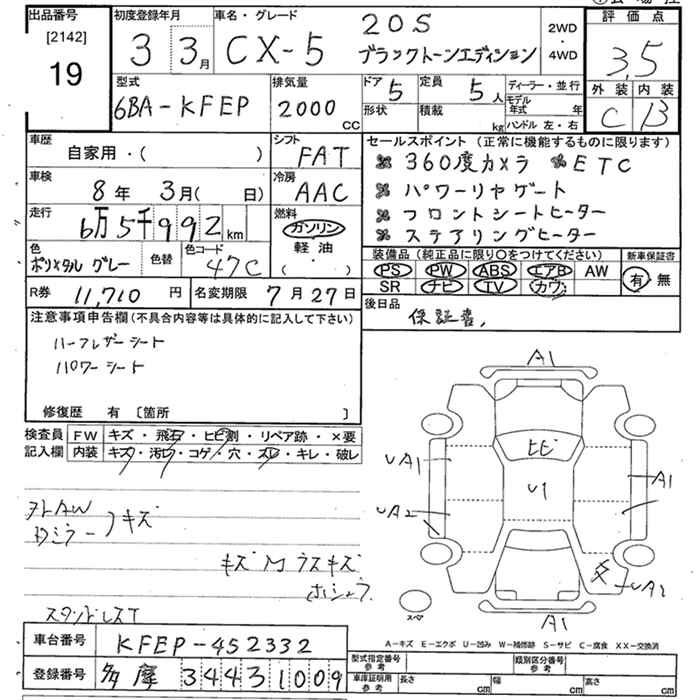 出品番号
[2142]
19
初度登録年月
3 3月
車名・グレード
CX-5
20S
ブラックトーンエディション
2WD
・
4WD
評価点
3.5
外装 内装
C B
型式
6BA-KFEP
排気量
2000
CC
ドア
5
定員
5人
形状
積載
kg
ディーラー・並行
モデル年式 年
ハンドル 左・右
車歴
自家用・( )
シフト
FAT
車検
8年 3月( 日)
冷房
AAC
走行
6万5千992km
燃料
ガソリン
軽油
( )
色
ポリメタル グレー
色替
色コード
47C
セールスポイント(正常に機能するものに限ります)
360度カメラ ETC
パワーリヤゲート
フロントシートヒーター
ステアリングヒーター
装備品(純正品に限り○をつけてください)
PS PW ABS エアB AW
SR ナビ TV カワ
新車保証書
有・無
R券 11,710円
名変期限 7月27日
後日品
保証書,
注意事項申告欄(不具合内容等は具体的に記入して下さい)
ハーフレザーシート
パワーシート
修復歴 有 [箇所 ]
検査員
記入欄
FW キズ・飛石・ヒビ割・リペア跡・×要
内装 キズ・汚レ・コゲ・穴・スレ・キレ・破レ
Dミラーキズ
キズ M ラスキズ
A1
UA1
ヒビ
U1
A1
UA2
UA2
スペア
A1
A-キズ E-エクボ U-凹み W-補修跡 S-サビ C-腐食 XX-交換済
車台番号
KFEP-452332
登録番号
多摩 344 3 1009
型式指定番号
参考
類別区分番号
参考
車庫証明用
参考
長さ cm
幅 cm
高さ cm